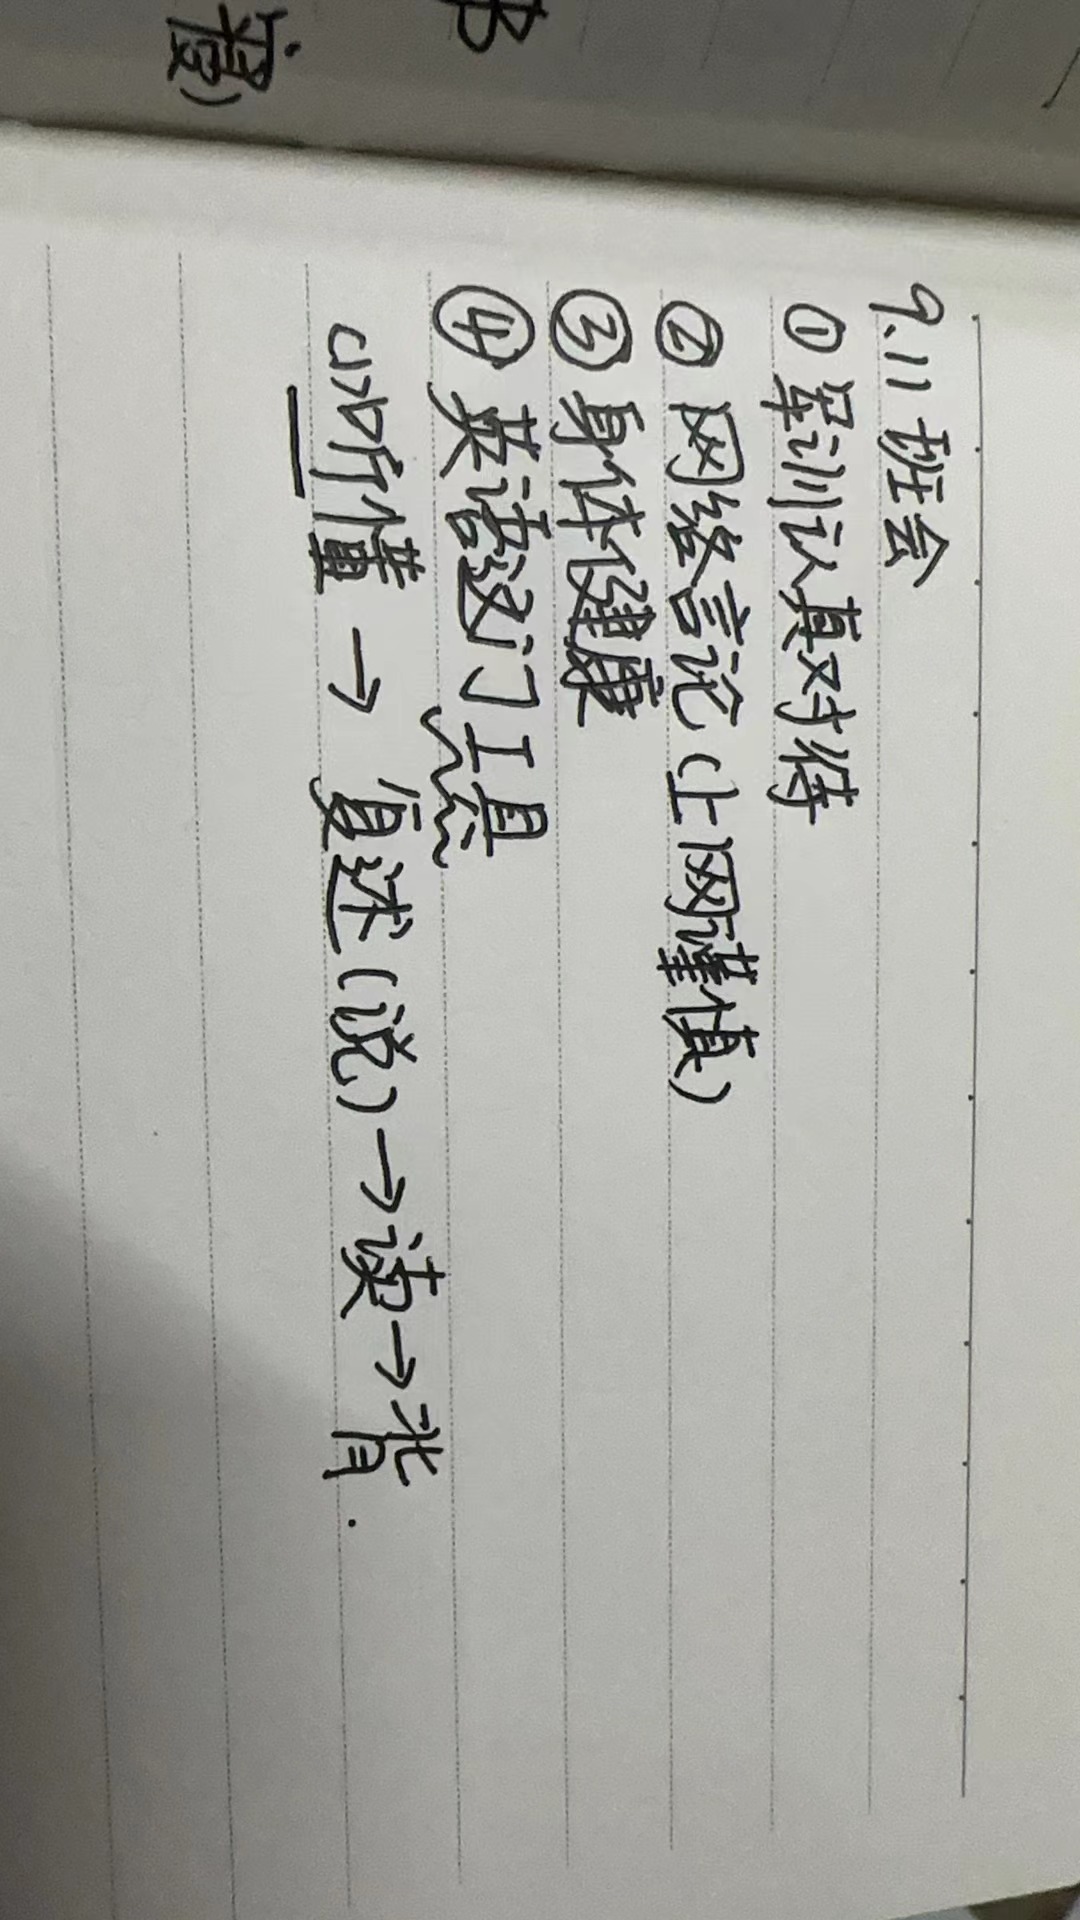 9.11 班会
① 军训认真对待
② 网络言论(上网谨慎)
③ 身体健康
④ 英语这门工具
(1)听懂 → 复述(说) → 读 → 背.